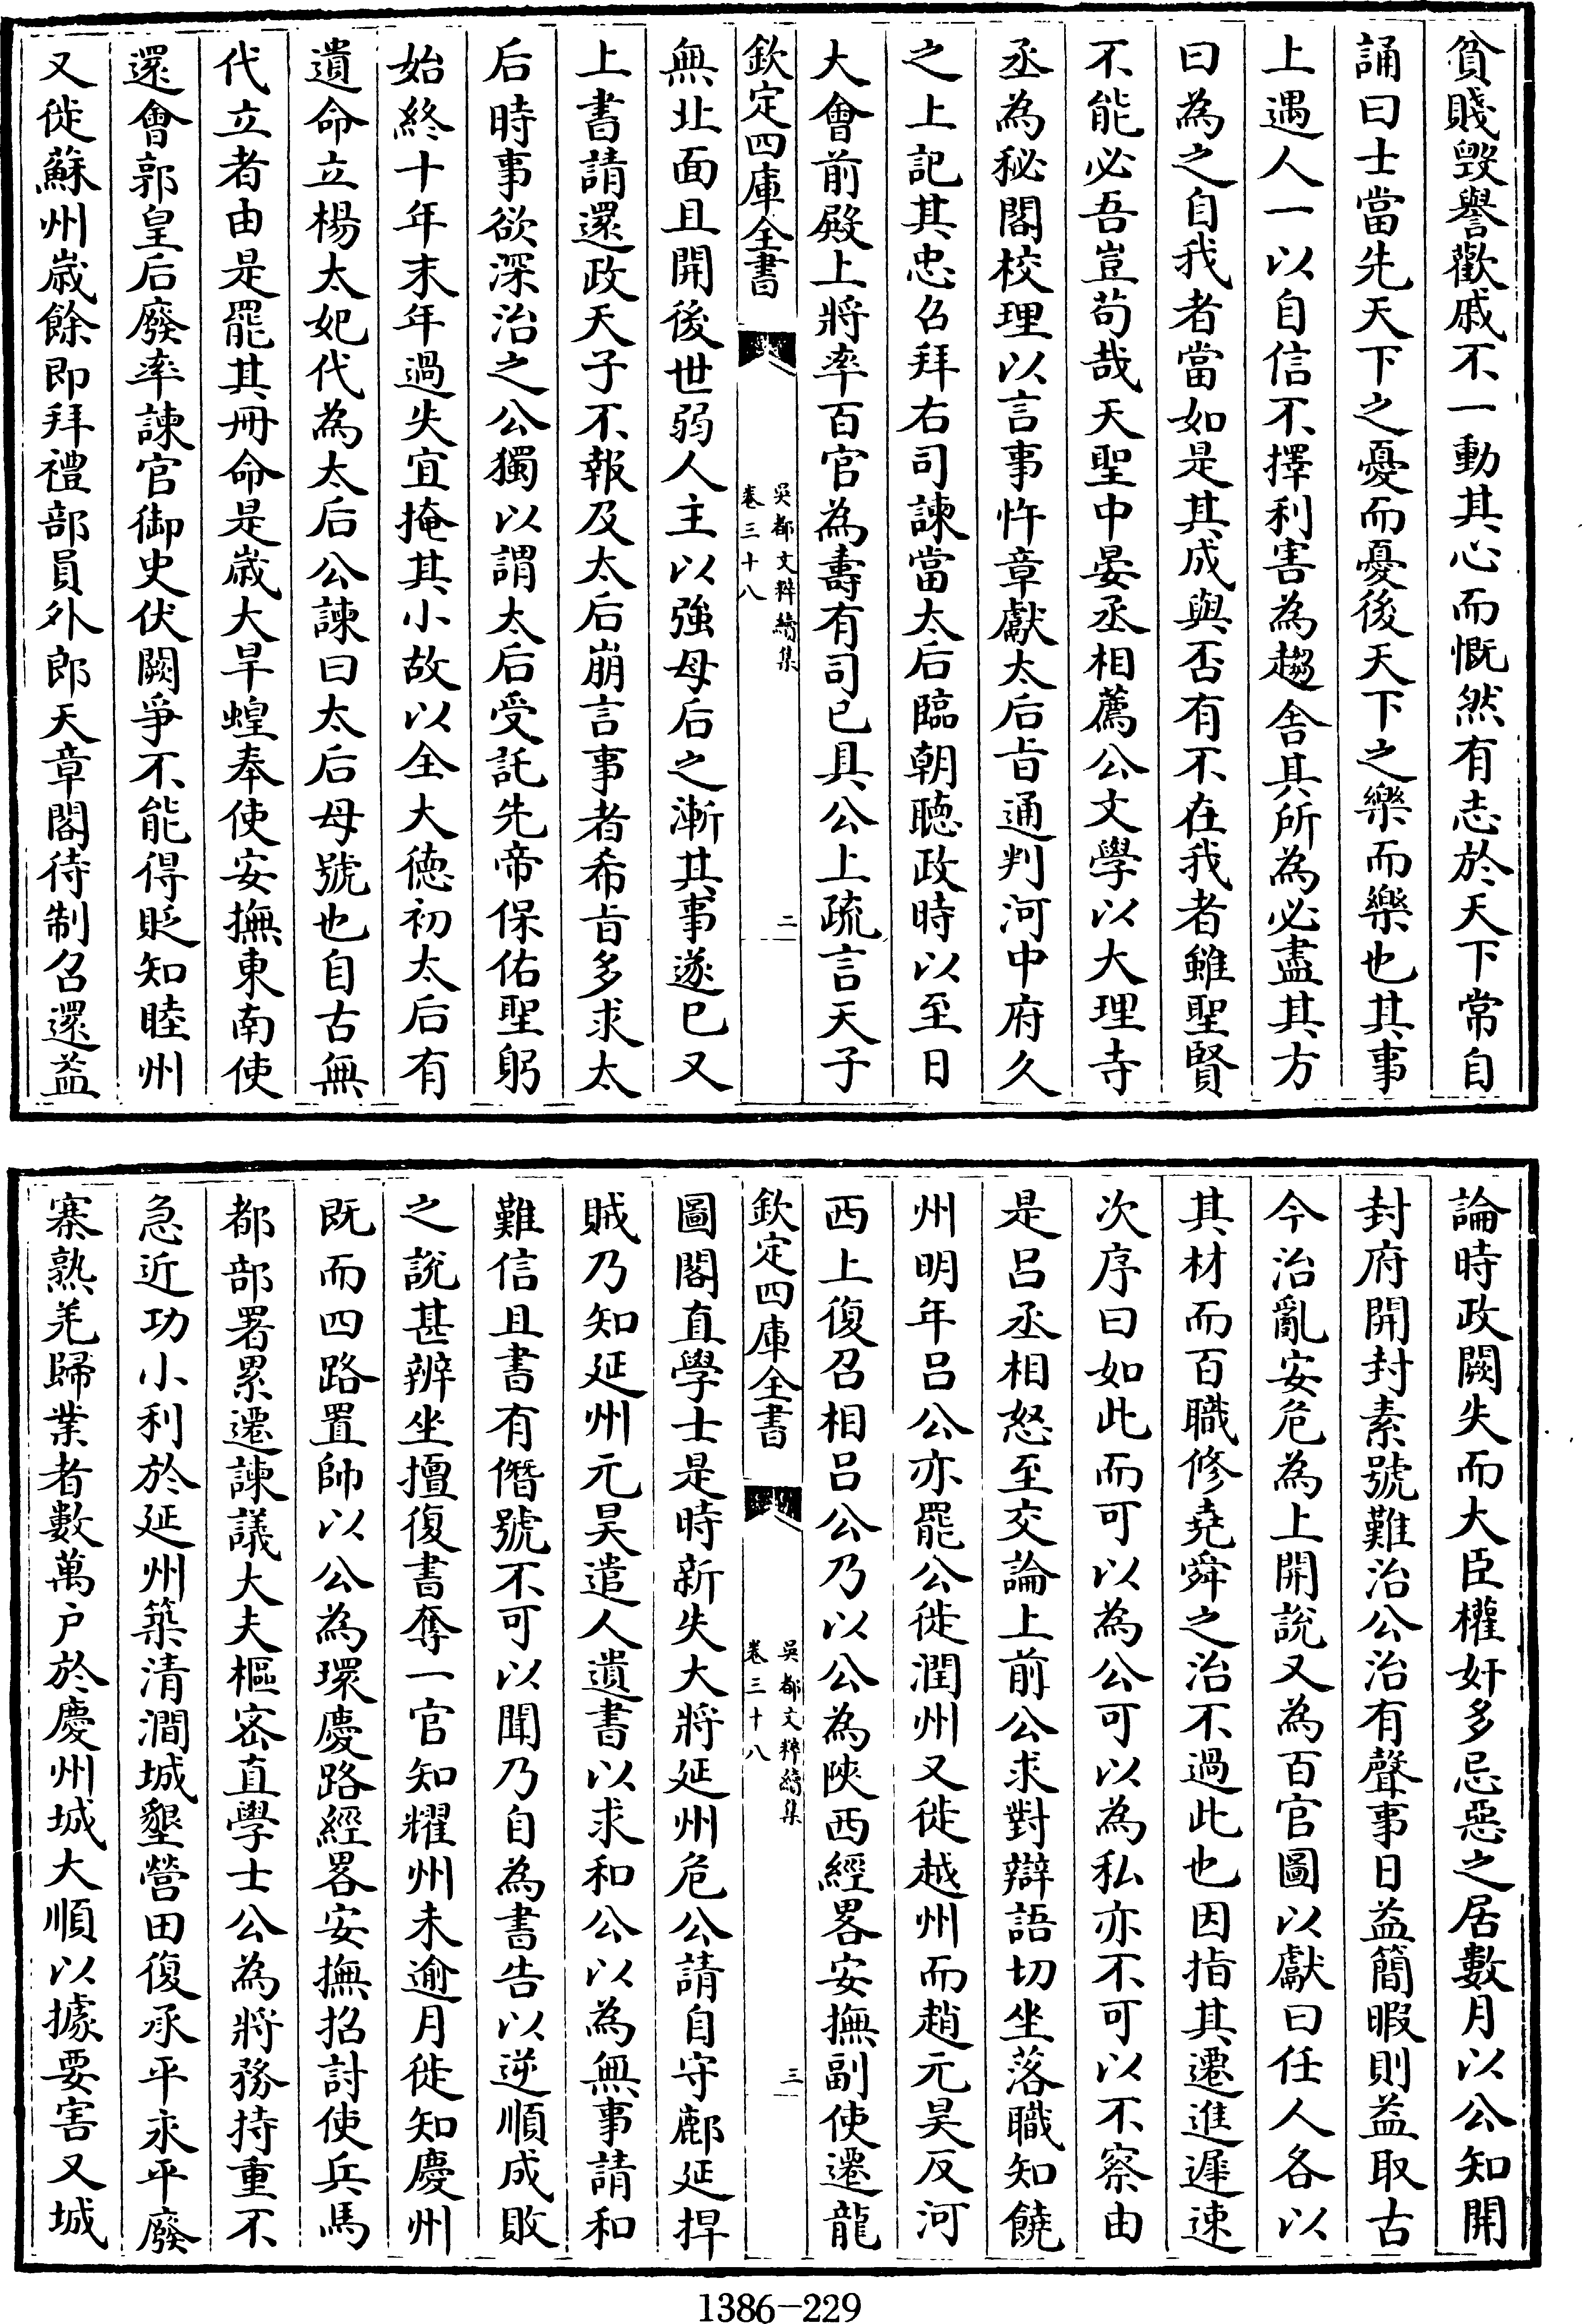 貧賤毀譽歡戚不一動其心而慨然有志於天下常自
誦曰士當先天下之憂而憂後天下之樂而樂也其事
上遇人一以自信不擇利害為趨舍其所為必盡其方
曰為之自我者當如是其成與否有不在我者雖聖賢
不能必吾豈苟哉天聖中晏丞相薦公文學以大理寺
丞為秘閣校理以言事忤章獻太后㫖通判河中府久
之上記其忠召拜右司諫當太后臨朝聽政時以至日
大會前殿上將率百官為壽有司已具公上疏言天子
欽定四庫全書
吳都文粹續集
卷三十八
二
無北面且開後世弱人主以強母后之漸其事遂已又
上書請還政天子不報及太后崩言事者希㫖多求太
后時事欲深治之公獨以謂太后受託先帝保佑聖躬
始終十年末年過失宜掩其小故以全大德初太后有
遺命立楊太妃代為太后公諫曰太后母號也自古無
代立者由是罷其冊命是嵗大旱蝗奉使安撫東南使
還會郭皇后廢率諫官御史伏闕爭不能得貶知睦州
又徙蘇州嵗餘即拜禮部員外郎天章閣待制召還益
論時政闕失而大臣權奸多忌惡之居數月以公知開
封府開封素號難治公治有聲事日益簡暇則益取古
今治亂安危為上開說又為百官圖以獻曰任人各以
其材而百職修堯舜之治不過此也因指其遷進遲速
次序曰如此而可以為公可以為私亦不可以不察由
是呂丞相怒至交論上前公求對辯語切坐落職知饒
州明年呂公亦罷公徙潤州又徙越州而趙元昊反河
西上復召相呂公乃以公為陜西經畧安撫副使遷龍
欽定四庫全書
吳都文粹續集
卷三十八
三
圖閣直學士是時新失大將延州危公請自守鄜延捍
賊乃知延州元昊遣人遺書以求和公以為無事請和
難信且書有僭號不可以聞乃自為書告以逆順成敗
之說甚辨坐擅復書奪一官知耀州未逾月徙知慶州
既而四路置帥以公為環慶路經畧安撫招討使兵馬
都部署累遷諫議大夫樞密直學士公為將務持重不
急近功小利於延州築清澗城墾營田復承平永平廢
寨熟羌歸業者數萬户於慶州城大順以據要害又城
1386-229